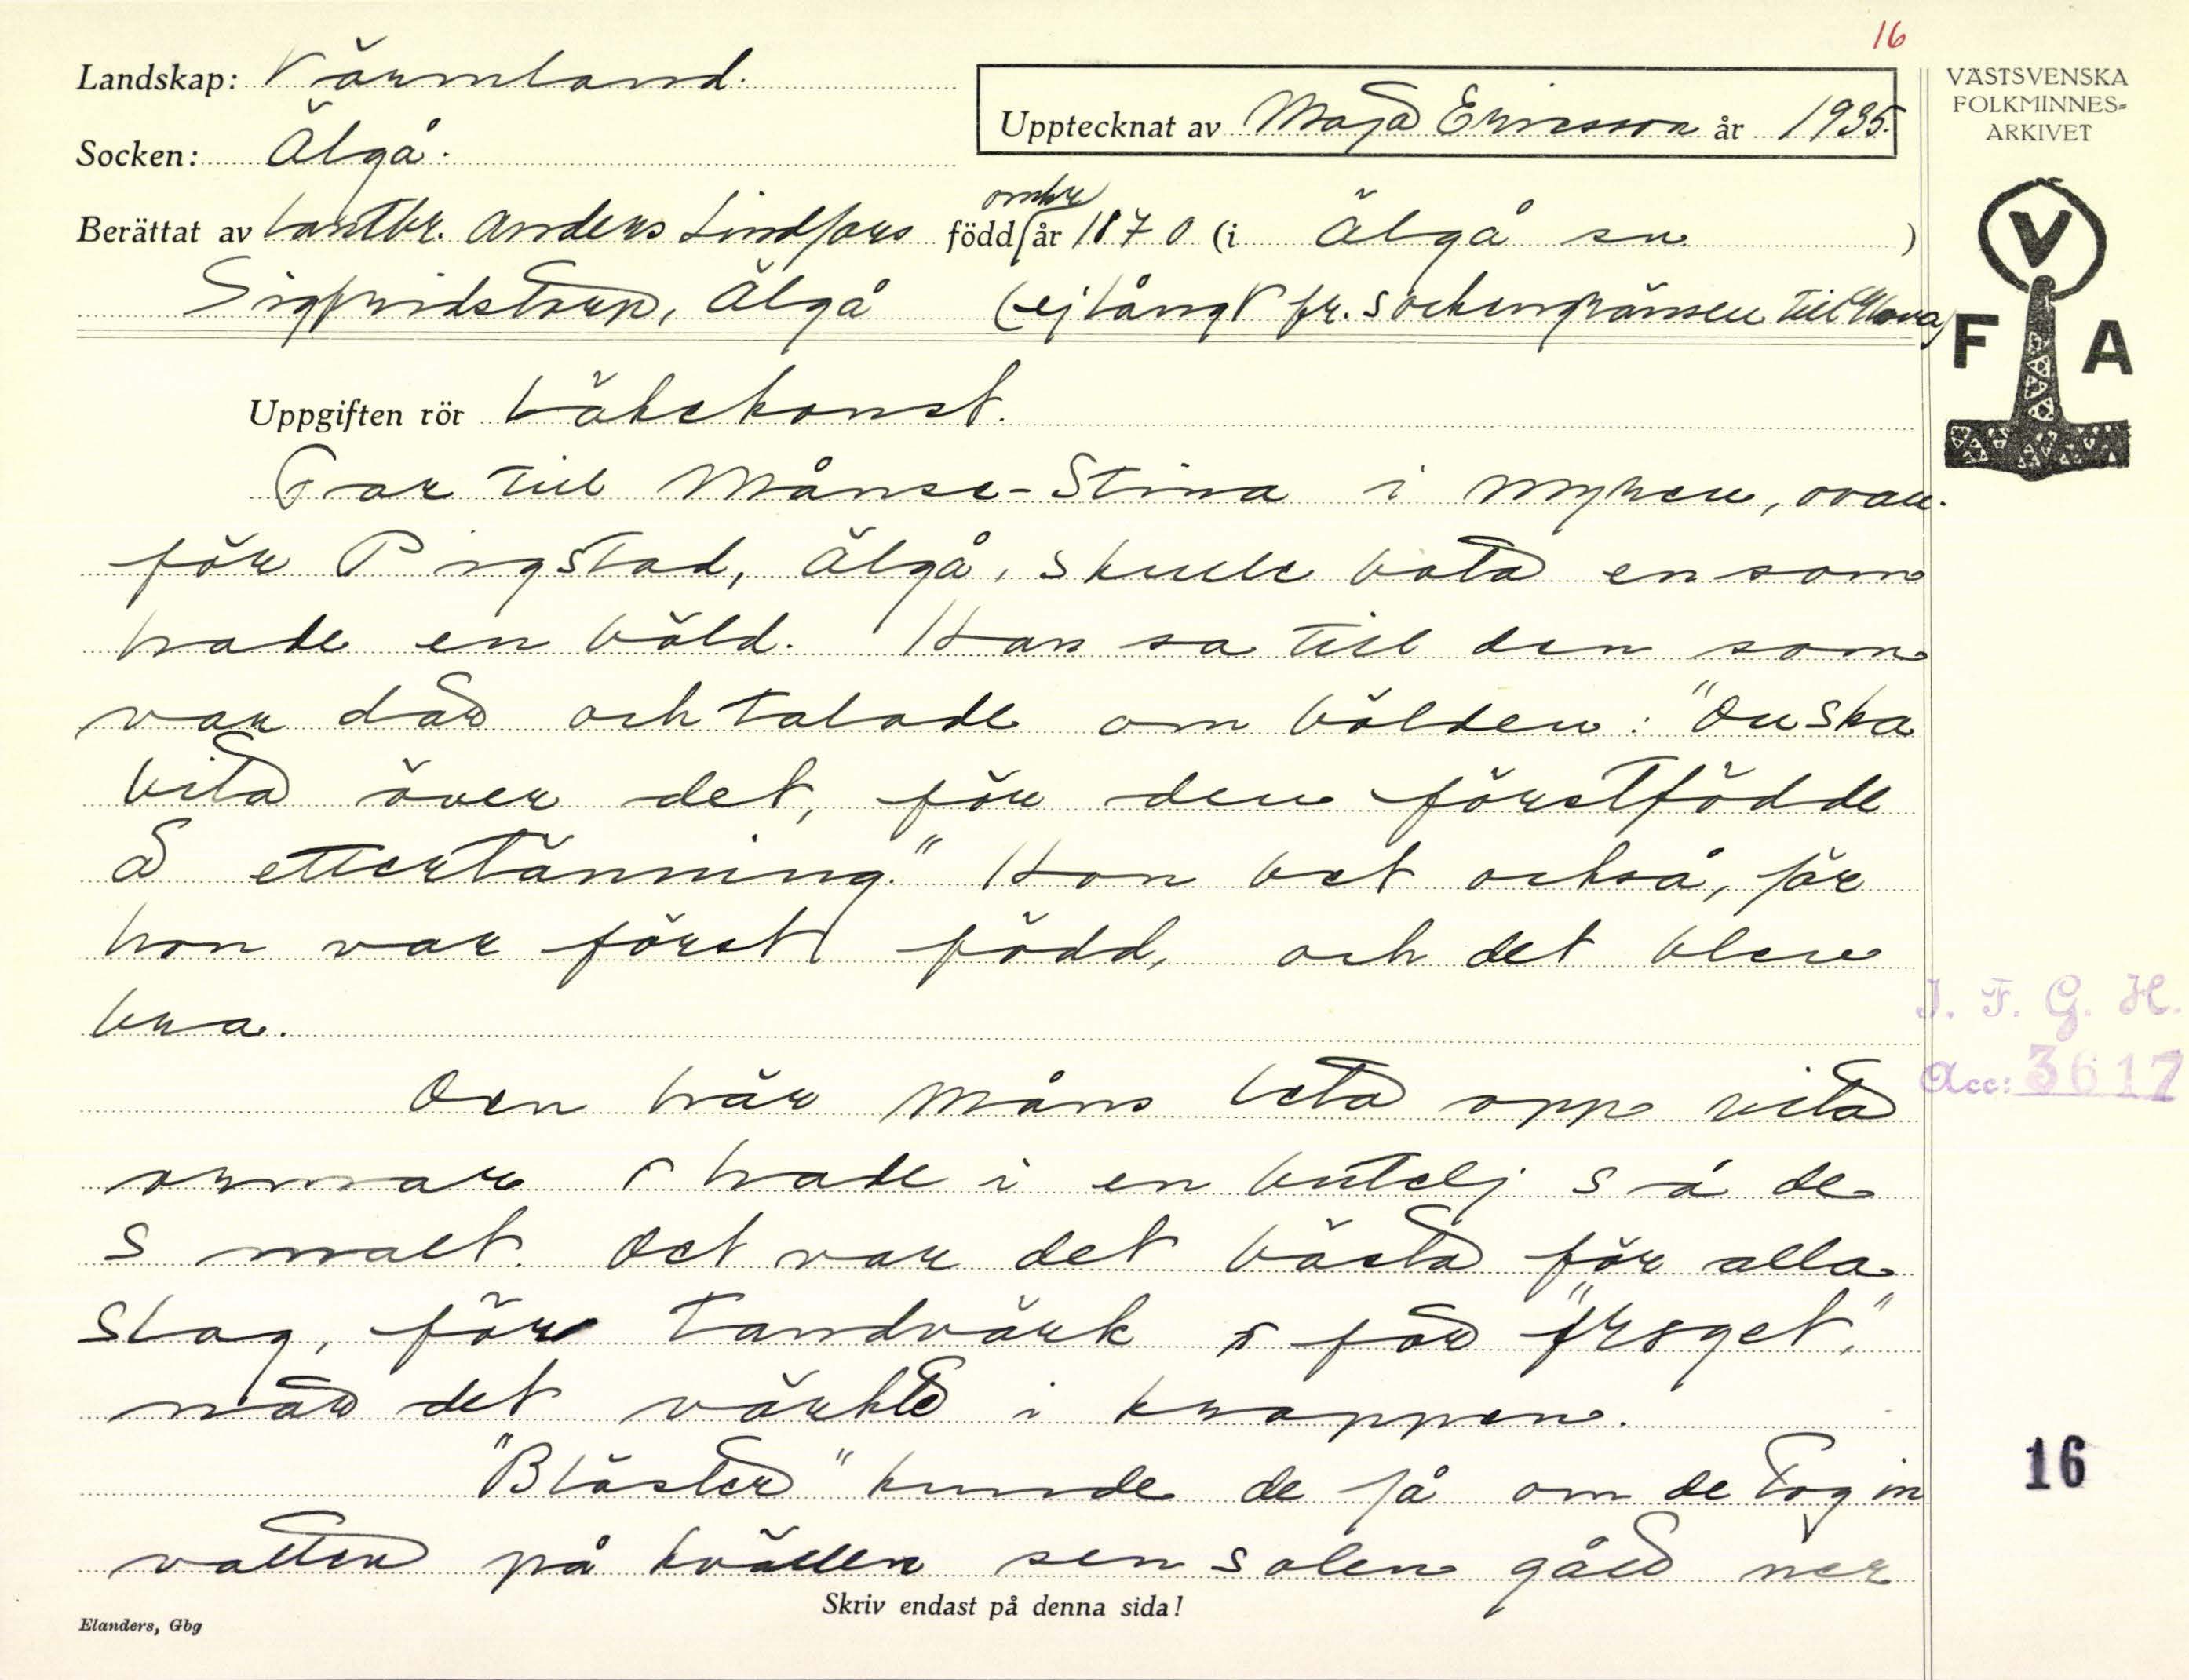 16
Landskap: Värmland.
Socken: Älgå.
Upptecknat av Maja Ericsson år 1935.
VÄSTSVENSKA
FOLKMINNES-
ARKIVET
Berättat av Lantbr. Anders Lindfors född omkr år 1870 (i Älgå sn)
Sigfridstorp, Älgå (ej långt fr. sockengränsen till Glava)
V
F A
Uppgiften rör Läkekonst.
Far till Månse-Stina i myren, ovan-
för Pigstad, Älgå, skulle bota en som
hade en böld. Han sa till den som
var där och talade om bölden: "Du ska
bita över det, för den förstfödde
ä ettertänning." Hon bet också, för
hon var först född, och det blev
bra.
Den här Måns leta opp vita
ormar o hade i en butelj så de
smalt. Det var det bästa för alla
slag, för tandvärk o för "froget",
när det värkte i kroppen.
"Bläster" kunde de få om de tog in
vatten på kvällen sen solen gått ner
I. F. G. H.
Acc: 3617
16
Skriv endast på denna sida!
Elanders, Gbg